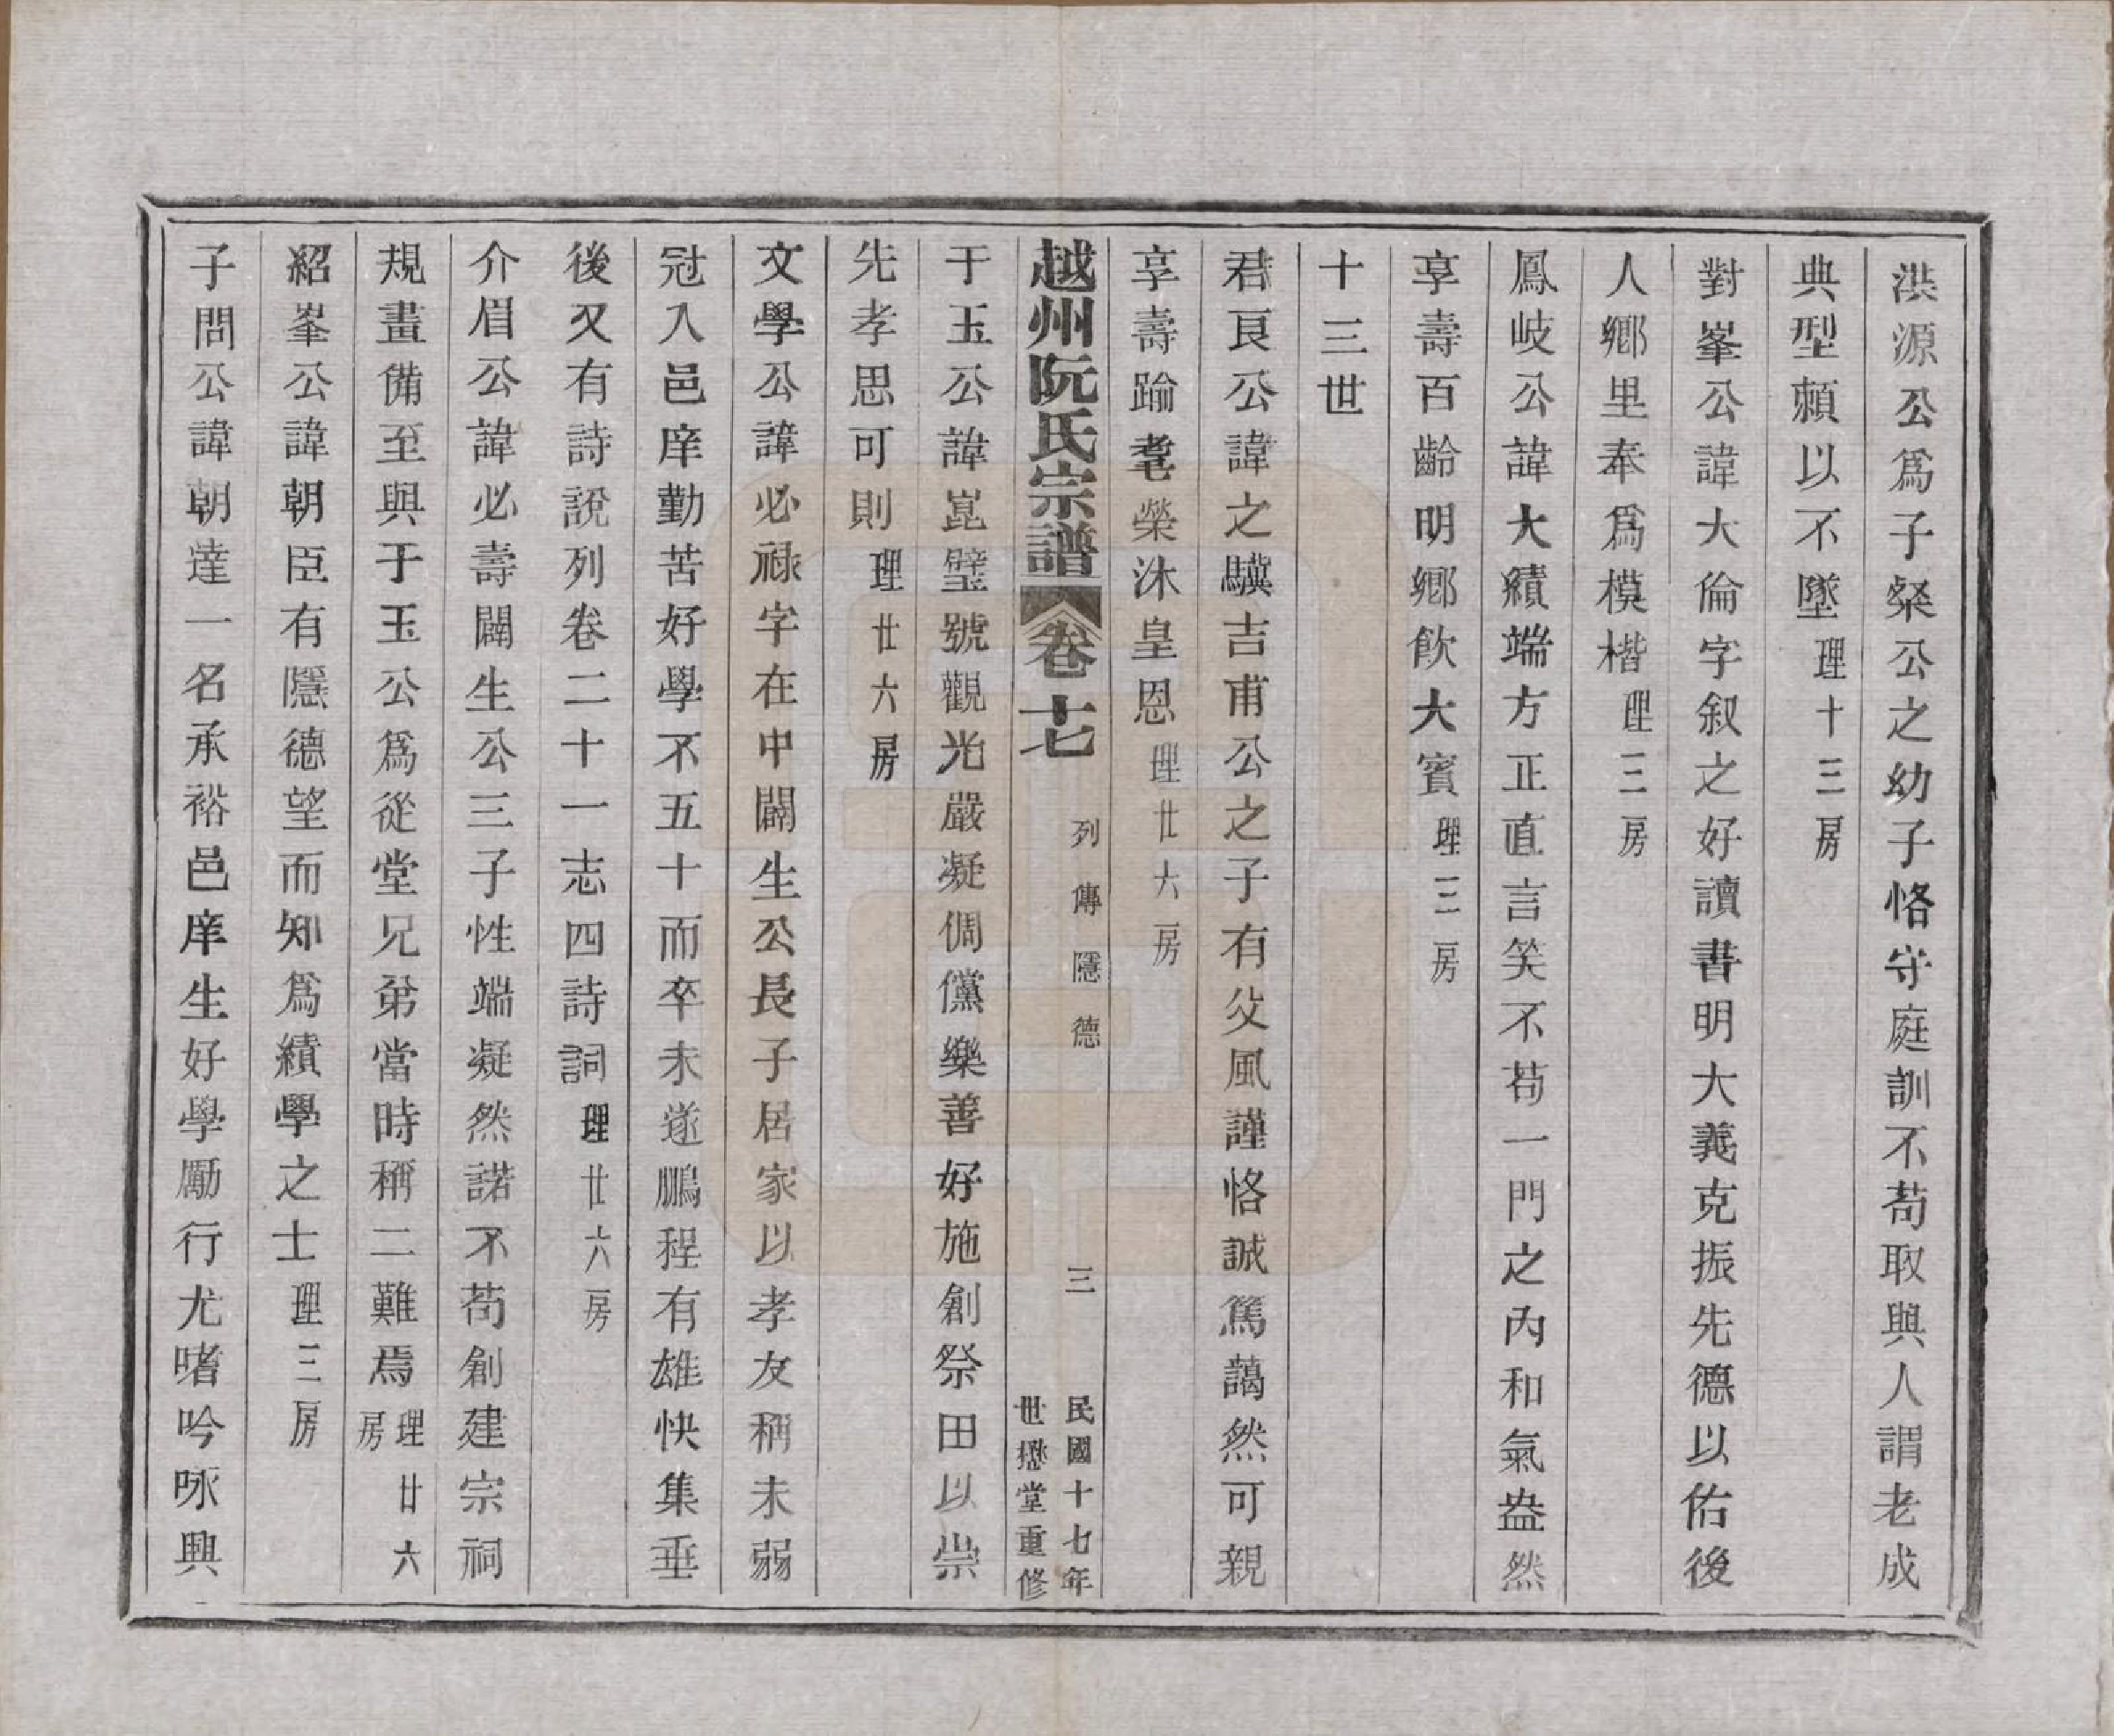 洪源公爲子粲公之幼子恪守庭訓不苟取與人謂老成
典型頼以不墜理十三房
對峯公諱大倫字叙之好讀書明大義克振先德以佑後
人鄉里奉爲模楷理三房
鳳岐公諱大績端方正直言笑不苟一門之內和氣盎然
享壽百齡明鄉飲大賓理三房
十三世
君良公諱之驥吉甫公之子有父風謹恪誠篤藹然可親
享壽踰耄榮沐皇恩理廿六房
越州阮氏宗譜 卷十七 列傳 隱德 三 民國十七年
世懋堂重修
于玉公諱崑璧號觀光嚴凝倜儻樂善好施創祭田以崇
先孝思可則理廿六房
文學公諱必祿字在中闢生公長子居家以孝友稱未弱
冠入邑庠勤苦好學不五十而卒未遂鵬程有雄快集垂
後又有詩說列卷二十一志四詩詞理廿六房
介眉公諱必壽闢生公三子性端凝然諾不苟創建宗祠
規畫備至與于玉公爲從堂兄弟當時稱二難焉理廿六房
紹峯公諱朝臣有隱德望而知爲績學之士理三房
子問公諱朝達一名承裕邑庠生好學勵行尤嗜吟咏興